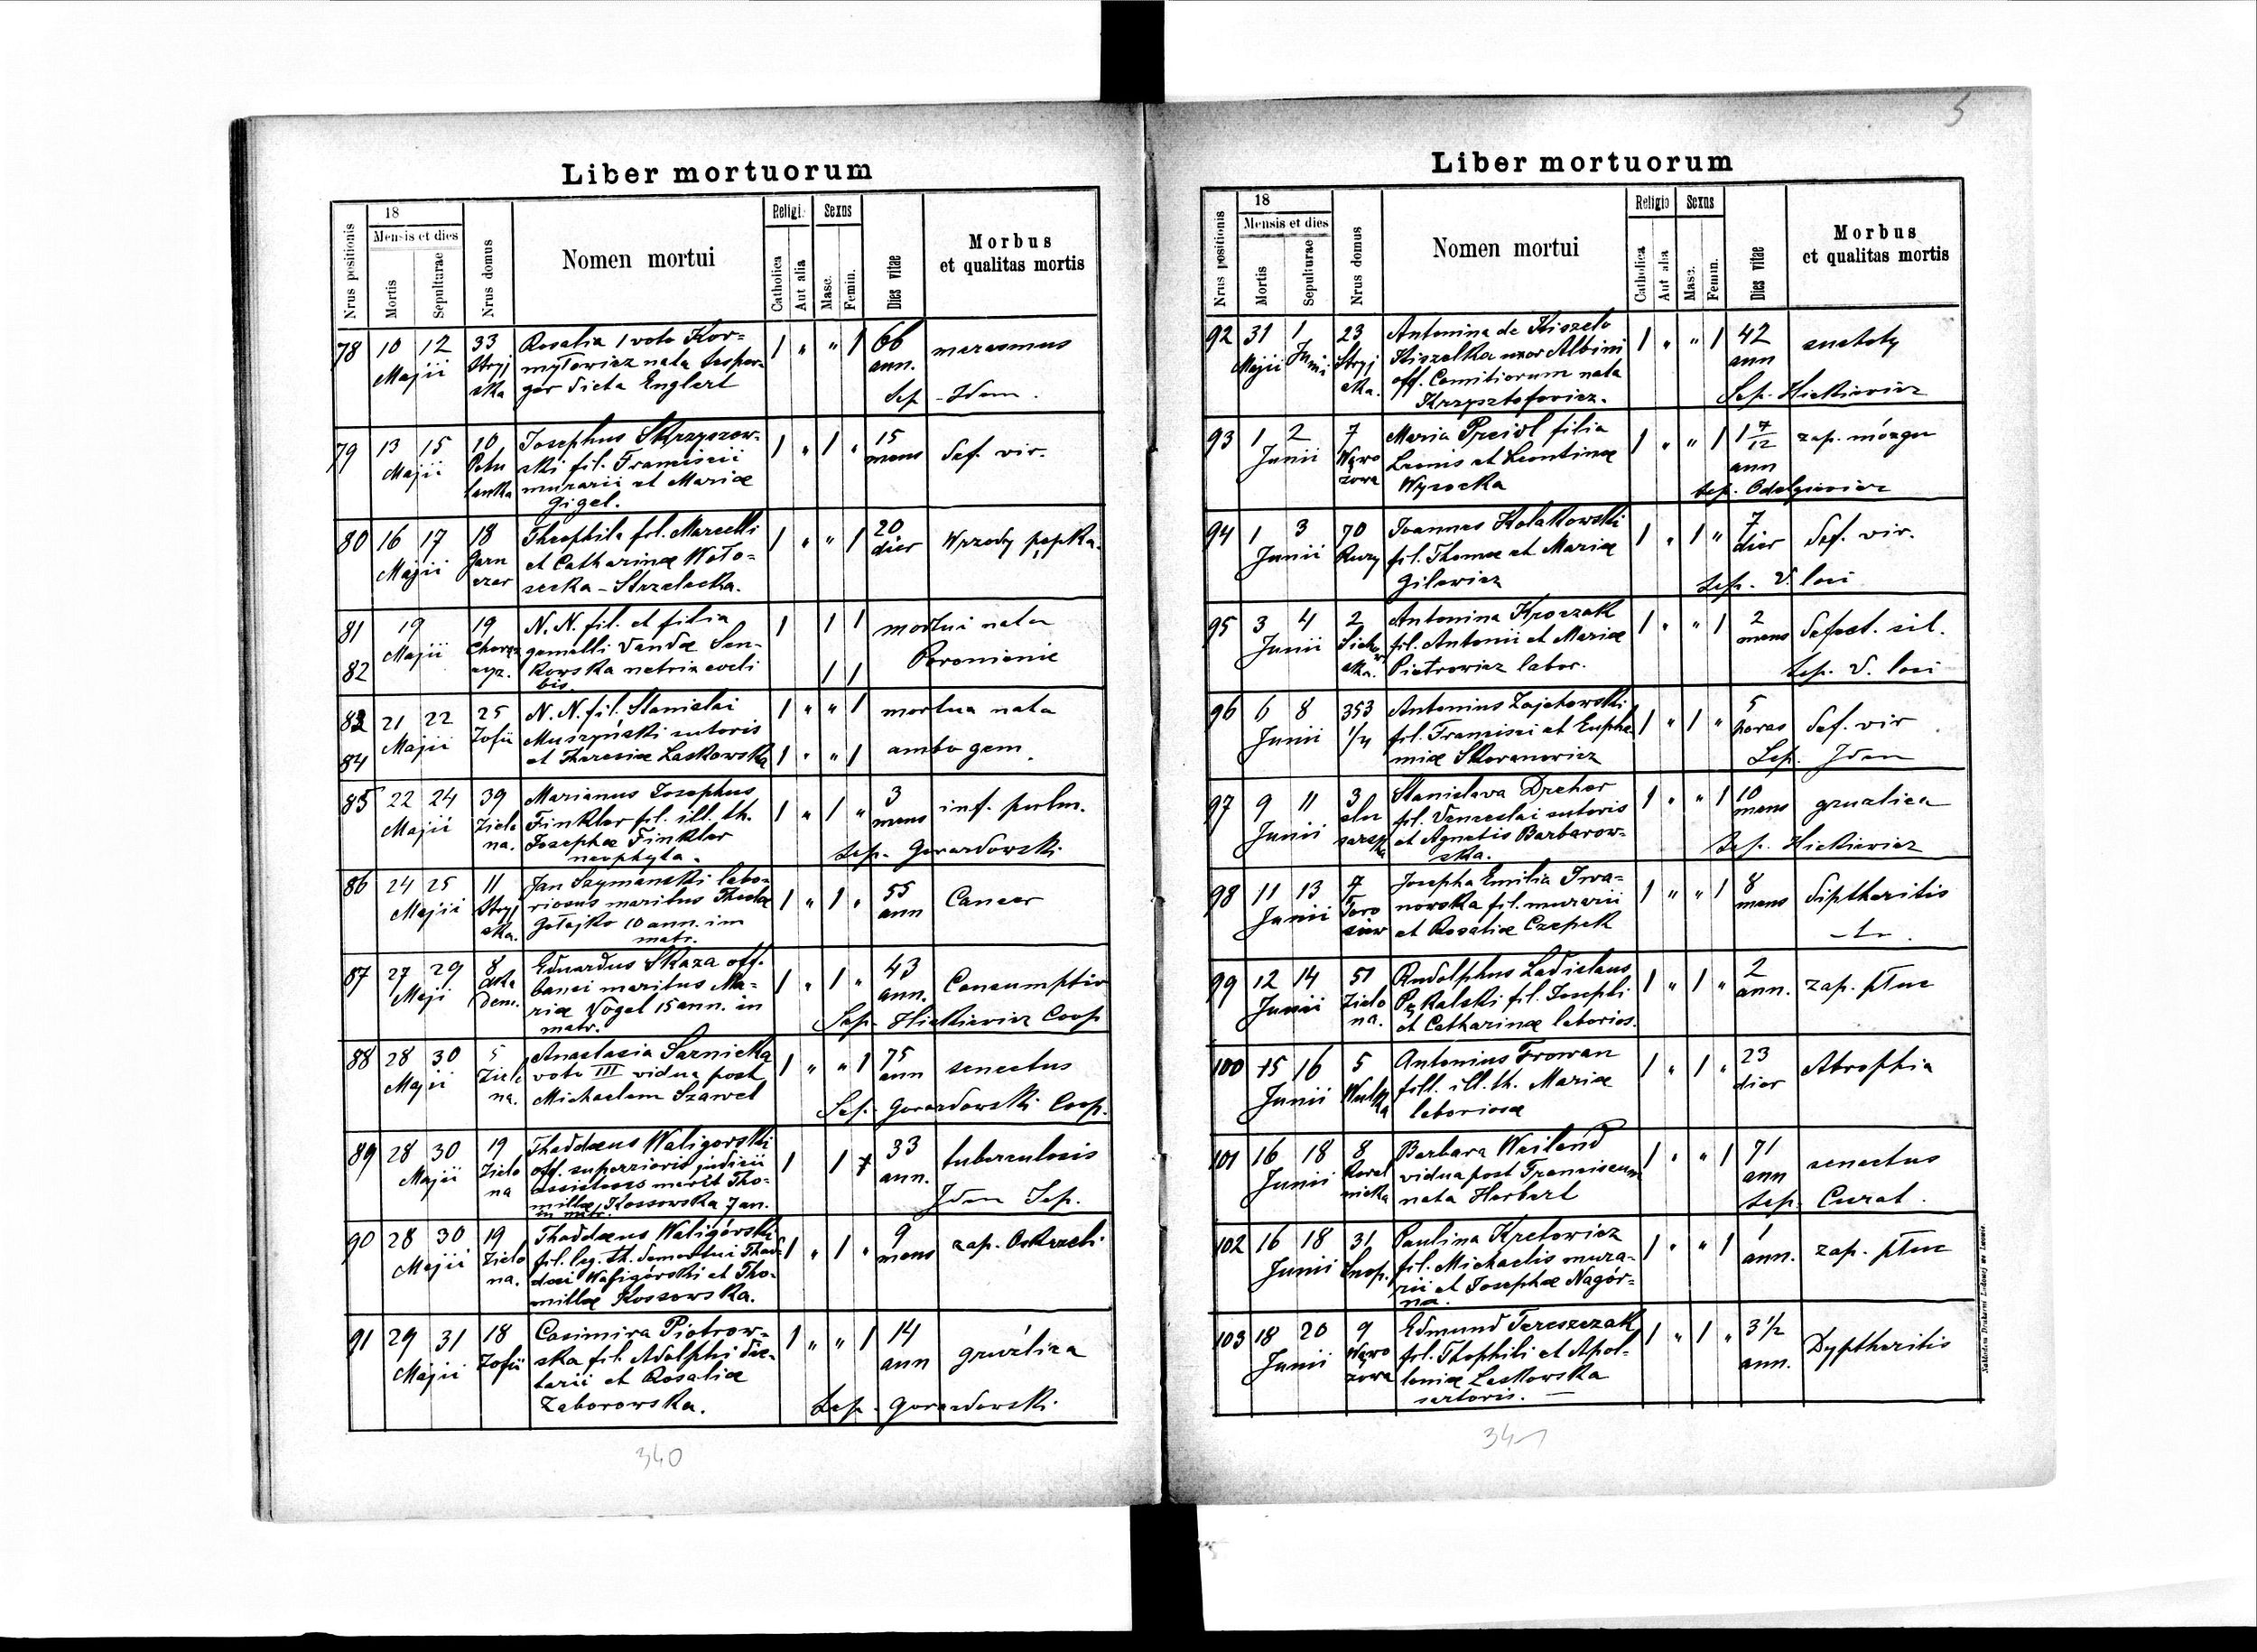 Liber mortuorum
Nrus positionis
18
Mensis et dies
Mortis
Sepulturae
Nrus domus
Nomen mortui
Religi.
Catholica
Aut alia
Sexus
Masc.
Femin.
Dies vitae
Morbus
et qualitas mortis
78 10 12 Majii 33 Stryjska
Rosalia 1 voto Kor=
myłowicz nata
dicta Englert
1 " " 1 66 ann. marasmus
Sep - Idem.
79 13 15 Majii 10 Pohulanka
Josephus Skrzyszow-
ski fil. Franciscii
murarii et Mariæ
Gigel.
1 " 1 " 15 mens def. vir.
80 16 17 Majii 18 Garnczar
Theophila fil. Marcelli
et Catharinæ Woło=
secka - Strzelecka.
1 " " 1 20 dier Wrzody pępka.
81 82 19 Majii 19
N. N. fil. et filia
gemelli Vandæ Sen-
kowska
bis.
1 1 1 mortui nata
1 1 Poronienie
83 84 21 22 Majii 25 Zofii
N. N. fil. Stanislai
Muszyński sutoris
et Theresiæ Laskowska
1 " " 1 mortua nata
1 " " 1 ambo gem.
85 22 24 Majii 39 Zielona.
Marianus Josephus
Finkler fil. ill. th.
Josephæ Finkler
neophyta.
1 " 1 " 3 mens inf. pulm.
Sep. Gorardowski
86 24 25 Majii 11 Stryjska.
Jan Szymanski labo=
riosus maritus Theclæ
Gołejko 10 ann. im
matr.
1 " 1 " 55 ann Cancer
87 27 29 Maji 8
Eduardus Skaza off.
banci maritus Ma=
riæ Vogel 15 ann. in
matr.
1 " 1 " 43 ann. Consumptio
Sep. Hickiewicz Coop
88 28 30 Majii 5 Zielona.
Anastasia Sarnicka
voto III vidua post
Michaelem Szawel
1 " " 1 75 ann senectus
Sep. Gorardowski Coop.
89 28 30 Majii 19 Zielona
Thaddæus Waligorski
off. superioris judicii
assistens marit Tho=
millæ Kossowska Jan.
in matr.
1 1 33 ann. tuberculosis
Idem Sep.
90 28 30 Majii 19 Zielona.
Thaddæus Waligórski
fil. leg. th. demortui Thad=
dæi Waligórski et Tho=
millæ Kossowska.
1 " 1 " 9 mens zap. Oskrzeli.
91 29 31 Majii 18 Zofii
Casimira Piotrow=
ska fil. Adolphi die=
tarii et Rosaliæ
Zaborowska.
1 " " 1 14 ann gruźlica
Sep. Gorardowski
340
5
Liber mortuorum
Nrus positionis
18
Mensis et dies
Mortis
Sepulturae
Nrus domus
Nomen mortui
Religio
Catholica
Aut alia
Sexus
Masc.
Femin.
Dies vitae
Morbus
et qualitas mortis
92 31 Majii 1 Juni 23 Stryjska.
Antonina de Kiszelo
Kiszelka uxor Albini
off. Comitiorum nata
Krzysztofowicz.
1 " " 1 42 ann suchoty
Sep. Hickiewicz
93 1 2 Junii 7 Wąwozowa
Maria Preidl filia
Leonis et Leontinæ
Wysocka
1 " " 1 1 7/12 ann zap. mózgu
Sep. Odelgiewicz
94 1 3 Junii 70 Rury
Joannes Kolakowski
fil. Thomæ et Mariæ
Gilewicz
1 " 1 " 7 dier def. vir.
Sep. V. loci
95 3 4 Junii 2
Antonina Kroczak
fil. Antonii et Mariæ
Pietrowicz labor.
1 " " 1 2 mens defect. vit.
Sep. V. loci
96 6 8 Junii 353 1/4
Antonius Zajchowski
fil. Francisci et Euphe
miæ Skoranowicz
1 " 1 " 5 horas def. vir
Sep. Idem
97 9 11 Junii 3
Stanislava Dreher
fil. Venceslai sutoris
et Agnetis Barbarow=
ska.
1 " " 1 10 mens gruzlica
Sep. Hickiewicz
98 11 13 Junii 7
Josepha Emilia Iwa=
nowska fil. murarii
et Rosaliæ Czepek
1 " " 1 8 mens diptheritis
99 12 14 Junii 51 Zielona.
Rudolphus Ladislaus
Pękalski fil. Josephi
et Catharinæ laborios.
1 " 1 " 2 ann. zap. płuc
100 15 16 Junii 5 Wulka
Antonius Trowan
fill. ill. th. Mariæ
laboriosæ
1 " 1 " 23 dier Atrophia
101 16 18 Junii 8
Barbara Weiland
vidua post Franciscum
nata Herbert
1 " " 1 71 ann senectus
Sep. Curat.
102 16 18 Junii 31 Snop.
Paulina Kretowicz
fil. Michaelis mura=
rii et Josephæ Nagór=
na.
1 " " 1 1 ann. zap. płuc
103 18 20 Junii 9 Wąwozowa
Edmund Tereszczak
fil. Theophili et Apol=
loniæ Laskowska
sartoris.
1 " 1 " 3 1/2 ann. Dyptheritis
341
Nakładem Drukarni Ludowej we Lwowie.